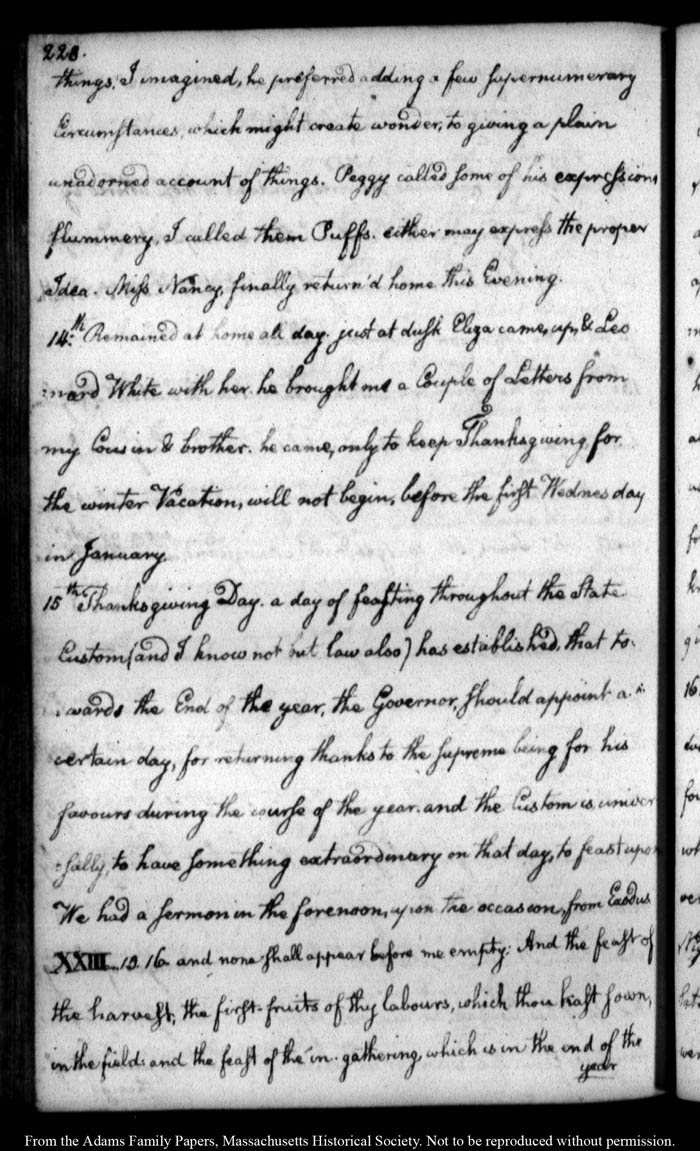 228.
things; I imagined, he preferred adding a few supernumerary
Circumstances, which might create wonder, to giving a plain
unadorned account of things. Peggy called some of his expressions
flummery, I called them Puffs. either may express the proper
Idea. Miss Nancy, finally return'd home this Evening.
14.th Remained at home all day. just at dusk Eliza came, up, & Leo
nard White with her. he brought me a Couple of Letters from
my Cousin & brother. he came, only to keep Thanksgiving, for
the winter Vacation, will not begin, before the first Wednesday
in January.
15th Thanksgiving Day. a day of feasting throughout the State
Custom (and I know not but law also) has established, that to-
wards the End of the year, the Governor, should appoint a
certain day, for returning thanks to the supreme being for his
favours during the course of the year. and the Custom is, univer
-sally, to have something extraordinary on that day, to feast upon
We had a sermon in the forenoon, upon the occasion, from Exodus
XXIII. 15. 16. and none shall appear before me empty: And the feast of
the harvest, the first-fruits of thy labours, which thou hast sown,
in the field: and the feast of the in-gathering, which is in the end of the
year
From the Adams Family Papers, Massachusetts Historical Society. Not to be reproduced without permission.